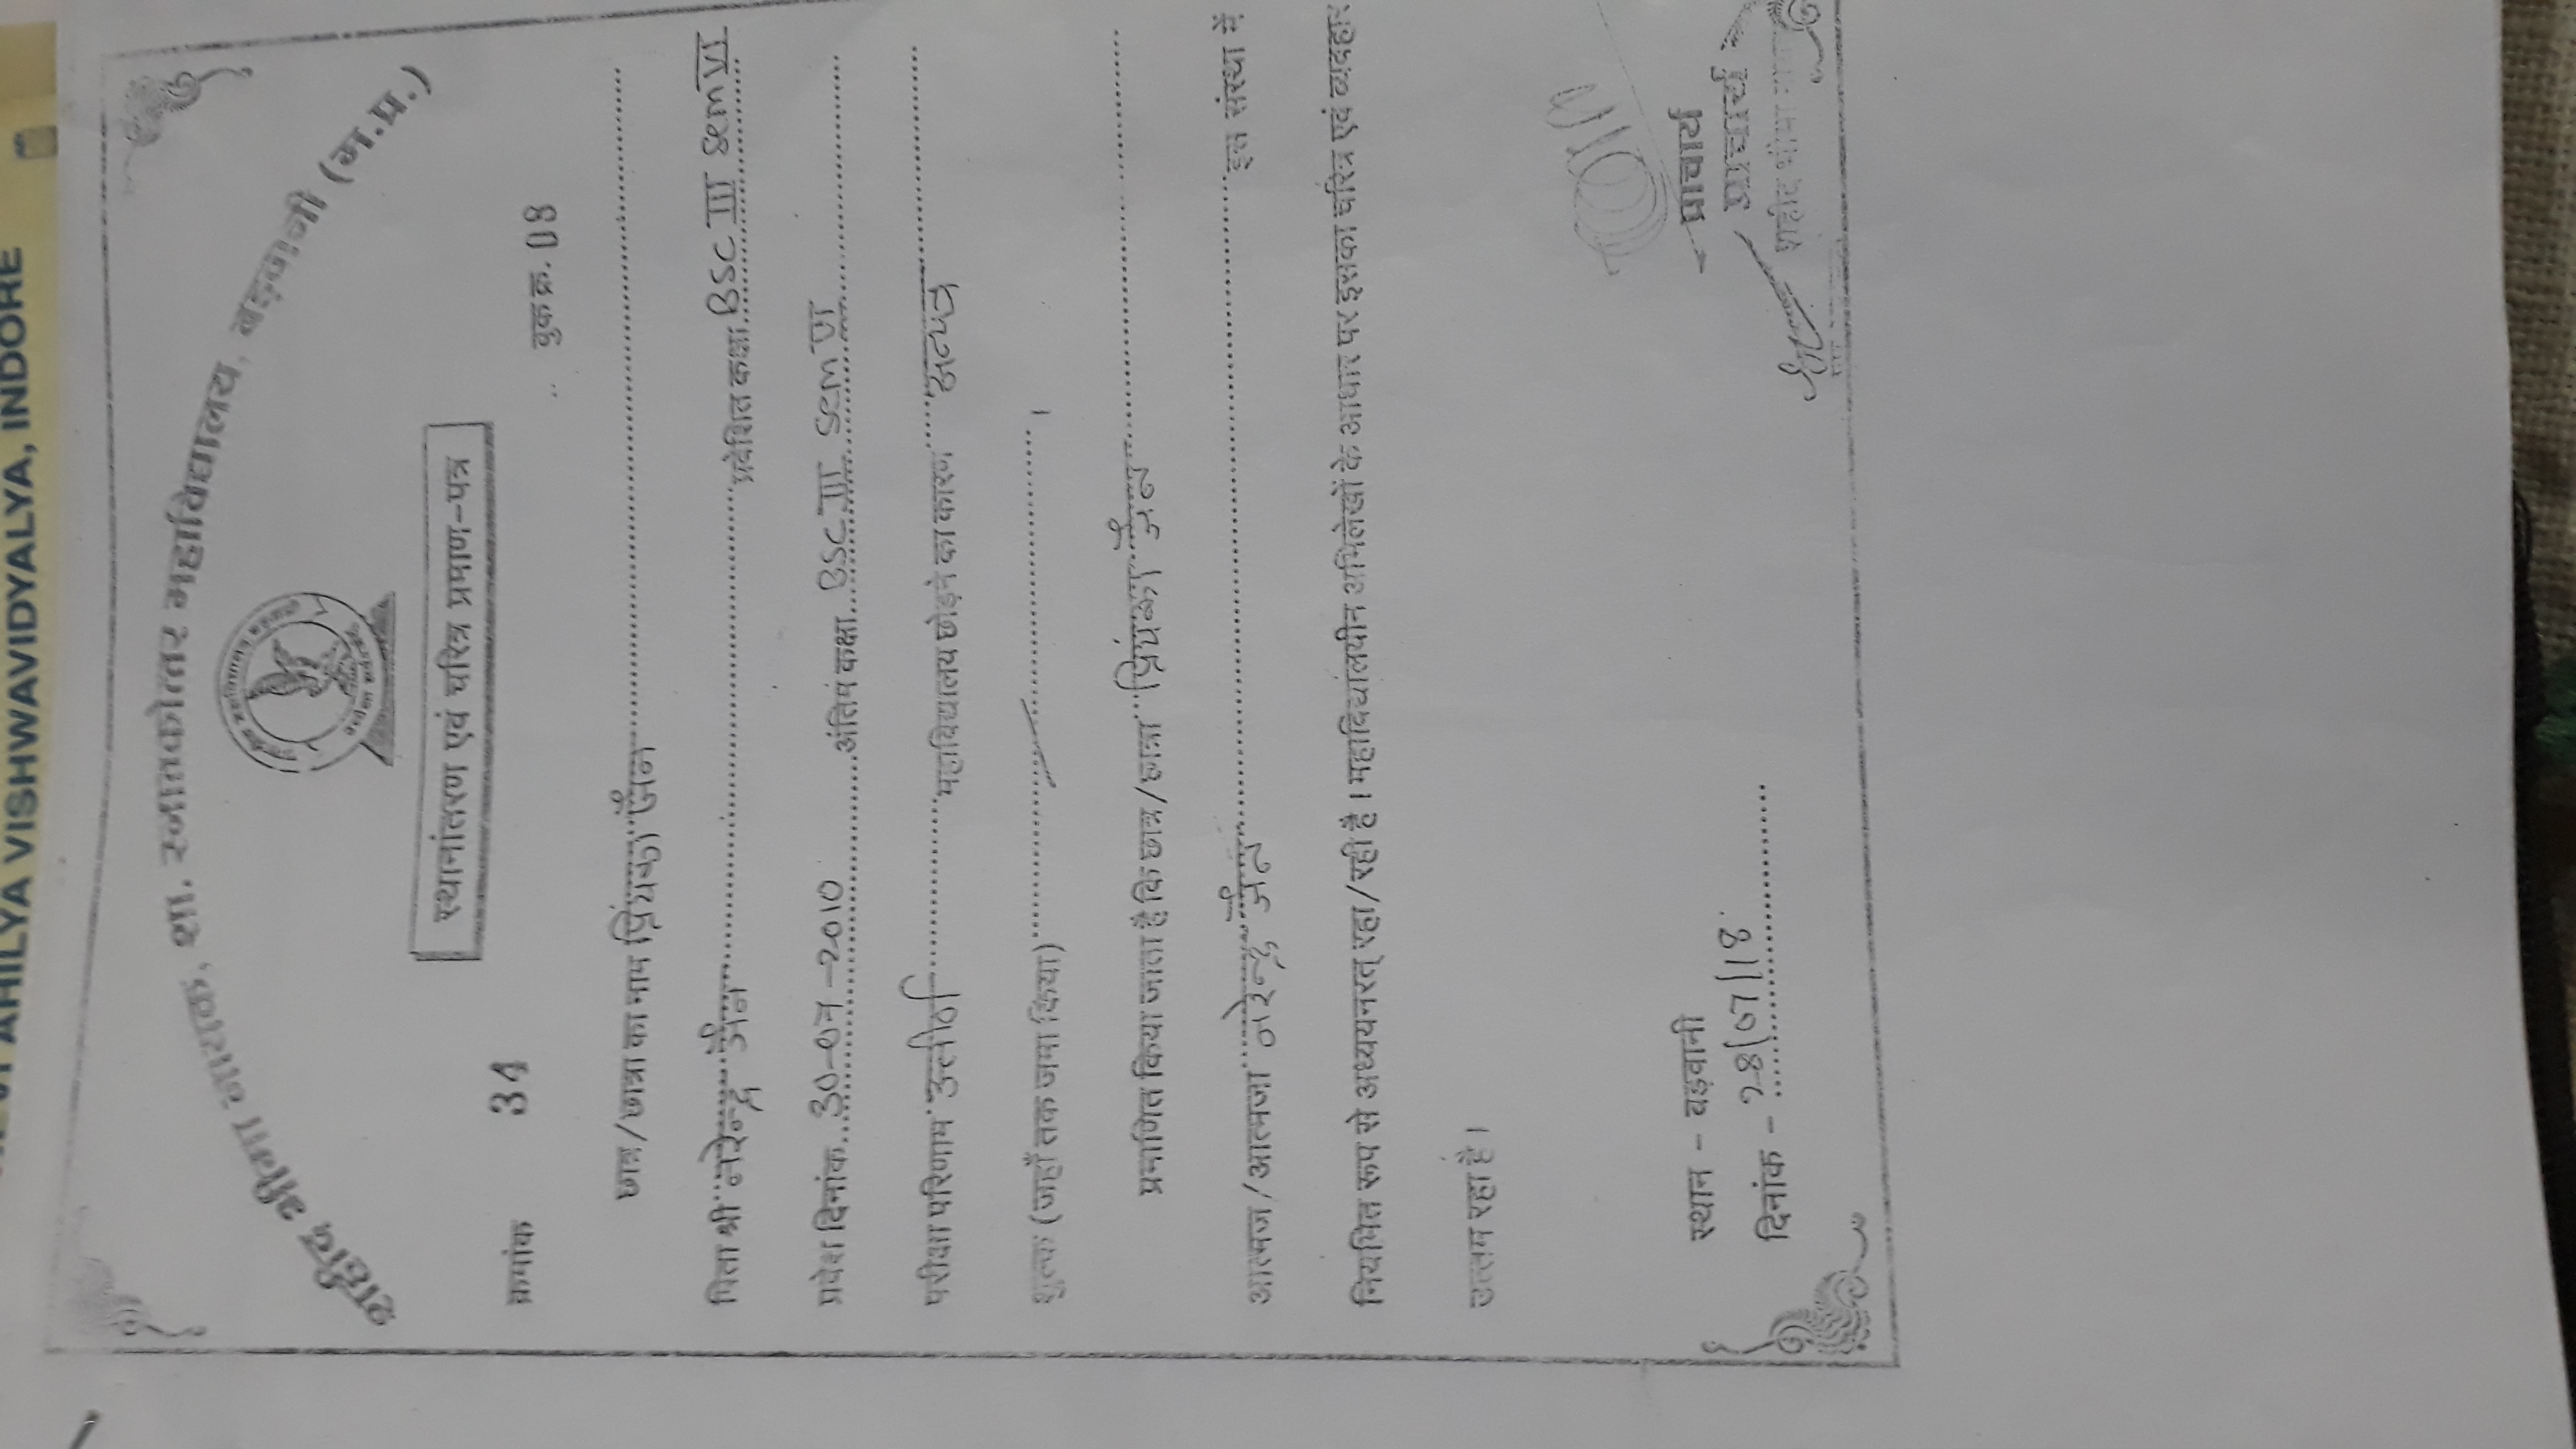 AHILYA VISHWAVIDYALYA, INDORE
शहीद भीमा नायक, शा. स्नातकोत्तर महाविद्यालय, बड़वानी (म.प्र.)
स्थानांतरण एवं चरित्र प्रमाण-पत्र
क्रमांक 34 बुक क्र. 08
छात्र/छात्रा का नाम प्रियंका जैन
पिता श्री नरेन्द्र जैन प्रवेशित कक्षा BSC III sem VI
प्रवेश दिनांक 30-07-2010 अंतिम कक्षा BSC III sem VI
परीक्षा परिणाम उत्तीर्ण महाविद्यालय छोड़ने का कारण अन्यत्र
शुल्क (जहाँ तक जमा किया) ।
प्रमाणित किया जाता है कि छात्र/छात्रा प्रियंका जैन
आत्मज/आत्मजा नरेन्द्र जैन इस संस्था में
नियमित रूप से अध्ययनरत् रहा/रही है। महाविद्यालयीन अभिलेखों के आधार पर इसका चरित्र एवं व्यवहार
उत्तम रहा है।
स्थान - बड़वानी प्राचार्य
दिनांक - 28/07/18 प्राचार्य